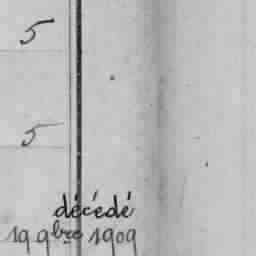 5
5
décédé
19 9bre 1909